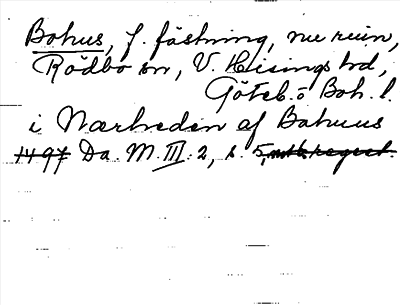 Bohus, f. fästning, nu ruin,
Rödbo sn, V. Hisings hd,
Göteb. o Boh. l.
i Nærheden af Bahuus
1497 Da. M. III. 2, s. 5, regest.